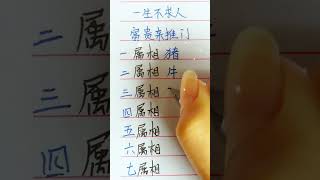 一生不求人
富贵来推门
一 属相 猪
二 属相 牛
三 属相
四 属相
五 属相
六 属相
七 属相